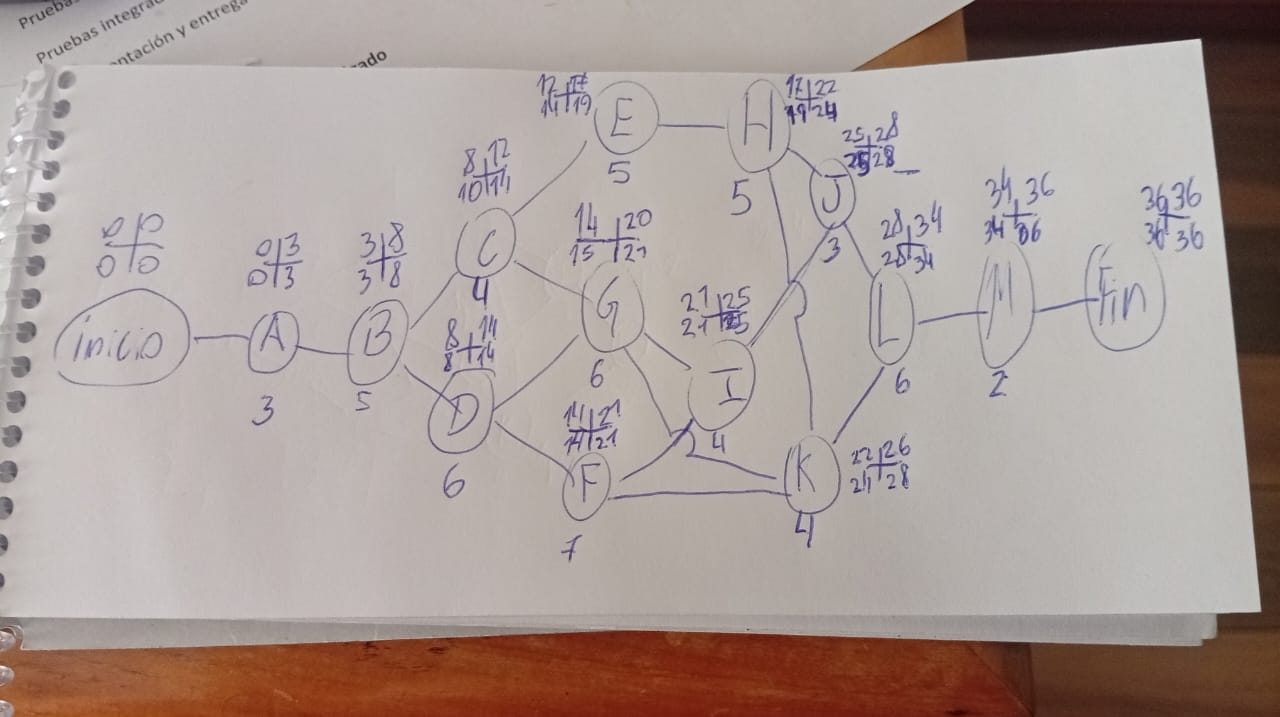 Pruebas integra
ntación y entrega
ado
inicio
0 0
0 0
A
3
0 3
0 3
B
5
3 8
3 8
C
4
8 12
10 14
D
6
8 14
8 14
E
5
12 17
14 19
G
6
14 20
15 21
F
7
14 21
14 21
H
5
17 22
19 24
I
4
21 25
21 25
J
3
25 28
25 28
K
4
22 26
24 28
L
6
28 34
28 34
M
2
34 36
34 36
Fin
36 36
36 36